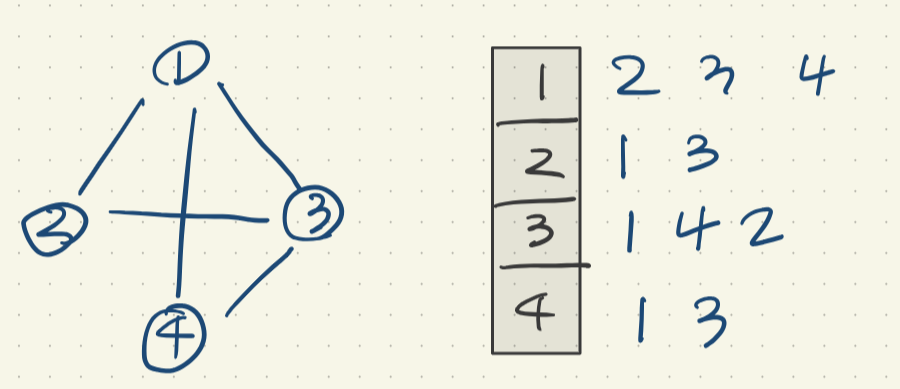 1
2
3
4
1 2 3 4
2 1 3
3 1 4 2
4 1 3